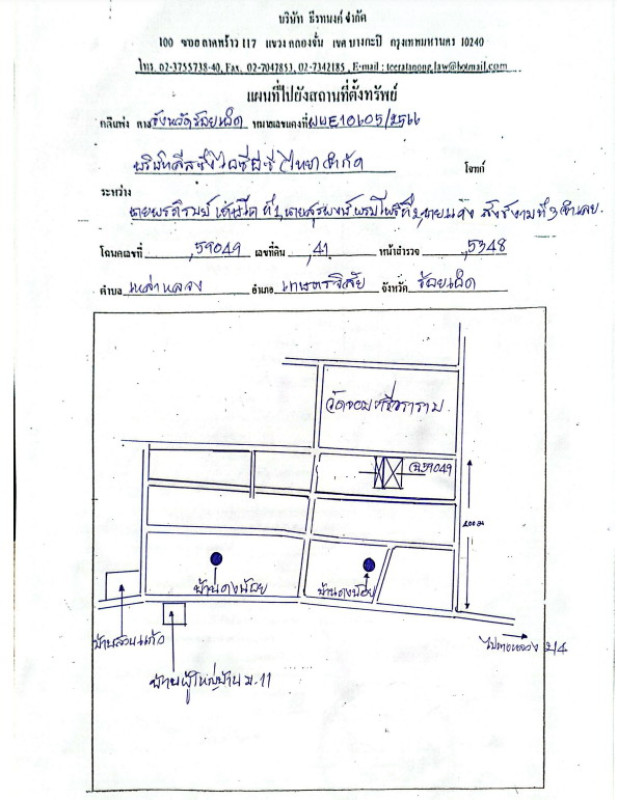 บริษัท ธีรทนงค์ จำกัด
100 ซอย ลาดพร้าว 117 แขวง คลองจั่น เขต บางกะปิ กรุงเทพมหานคร 10240
โทร. 02-3755738-40, Fax. 02-7047853, 02-7342185, E-mail : teeratanong.law@hotmail.com
แผนที่ไปยังสถานที่ตั้งทรัพย์
คดีแพ่ง ศาล จังหวัดร้อยเอ็ด หมายเลขแดงที่ ผบE1065/2566
บริษัทลีสซิ่งไอซีบีซี (ไทย) จำกัด โจทก์
ระหว่าง
ที่ 1, นายสุรพงษ์ ที่ 2, นาย ที่ 3 จำเลย.
โฉนดเลขที่ 59049 เลขที่ดิน 41 หน้าสำรวจ 5348
ตำบล เหล่าหลวง อำเภอ เกษตรวิสัย จังหวัด ร้อยเอ็ด
วัดจอมศรีวราราม
ฉ.59049
200 ม
บ้านดงน้อย
บ้านดงน้อย
บ้านสวนแก้ว
บ้านผู้ใหญ่บ้าน ม.11